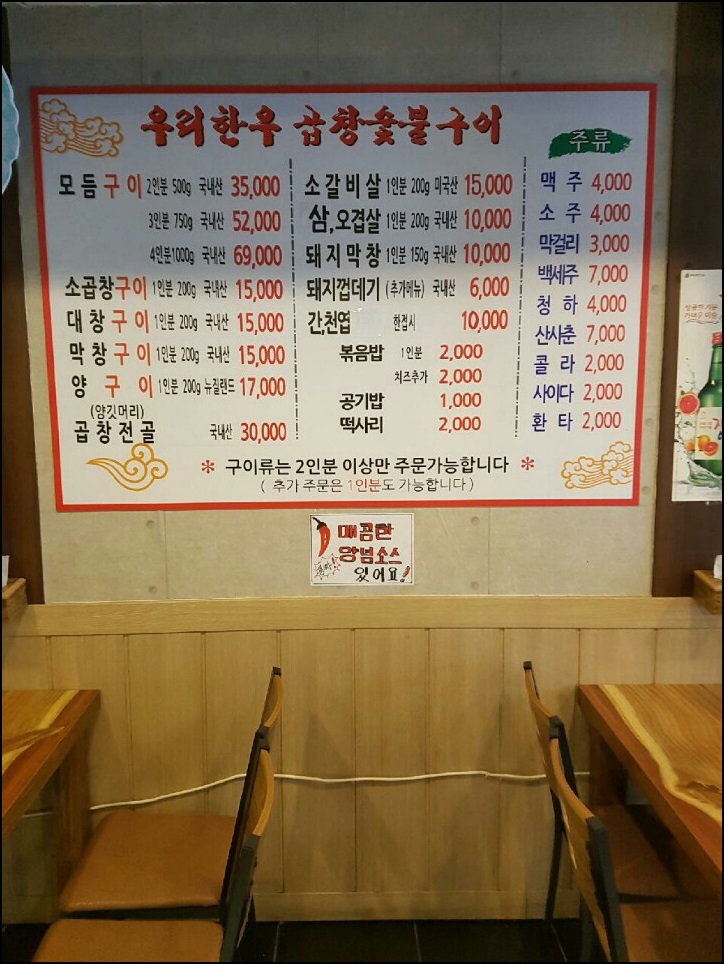 우리한우 곱창숯불구이
모듬구이 2인분 500g 국내산 35,000
3인분 750g 국내산 52,000
4인분1000g 국내산 69,000
소곱창구이 1인분 200g 국내산 15,000
대창구이 1인분 200g 국내산 15,000
막창구이 1인분 200g 국내산 15,000
양구이 1인분 200g 뉴질랜드 17,000
(양깃머리)
곱창전골 국내산 30,000
소갈비살 1인분 200g 미국산 15,000
삼,오겹살 1인분 200g 국내산 10,000
돼지막창 1인분 150g 국내산 10,000
돼지껍데기 (추가메뉴) 국내산 6,000
간천엽 한접시 10,000
볶음밥 1인분 2,000
치즈추가 2,000
공기밥 1,000
떡사리 2,000
주류
맥주 4,000
소주 4,000
막걸리 3,000
백세주 7,000
청하 4,000
산사춘 7,000
콜라 2,000
사이다 2,000
환타 2,000
* 구이류는 2인분 이상만 주문가능합니다 *
( 추가 주문은 1인분도 가능합니다 )
매콤한
양념소스
있어요!